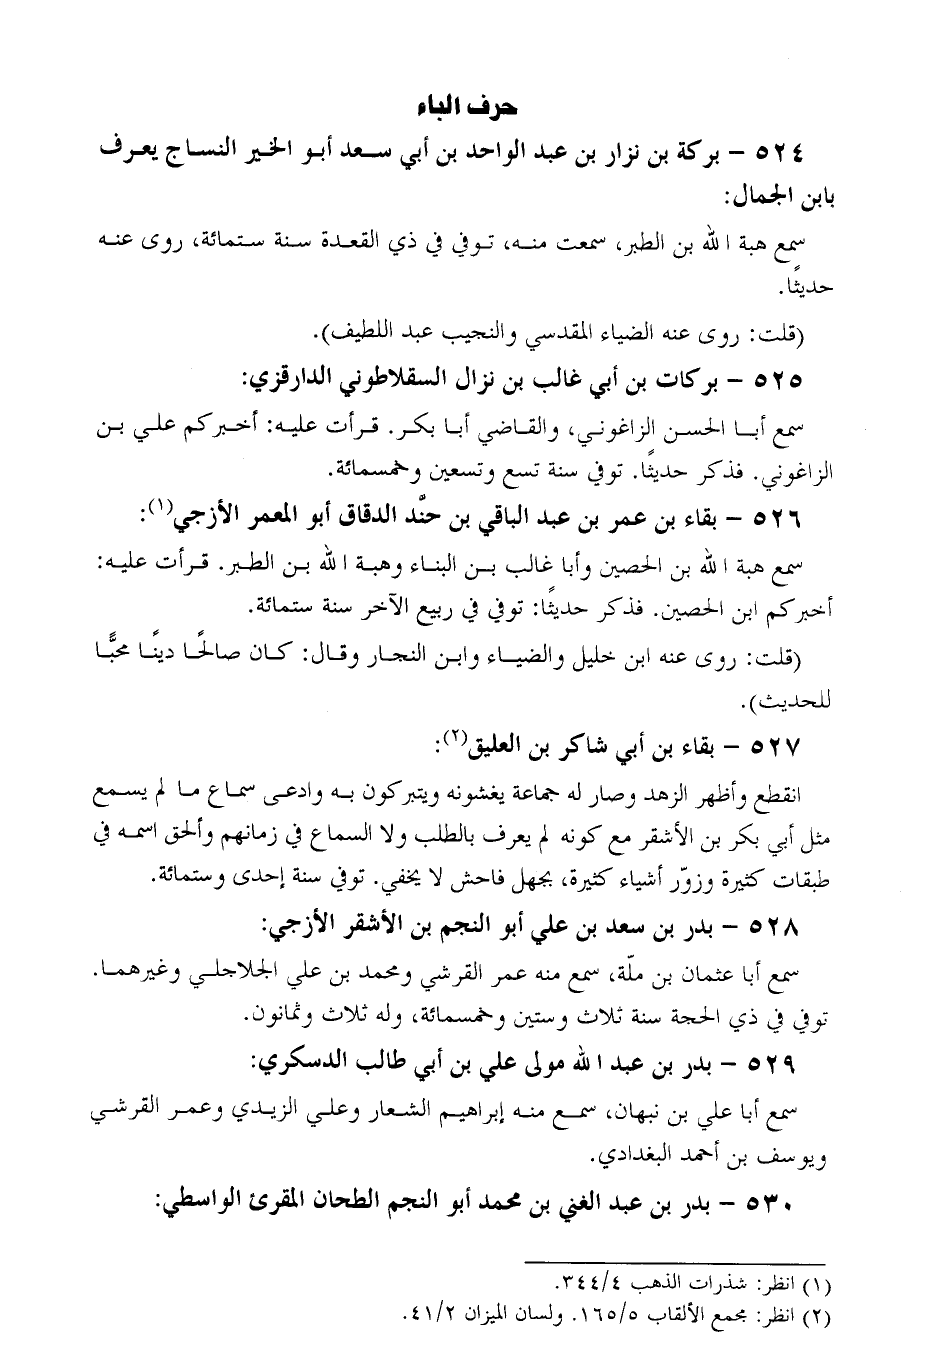 حرف الباء
٥٢٤ – بركة بن نزار بن عبد الواحد بن أبي سعد أبو الخير النساج يعرف
بابن الجمال:
سمع هبة الله بن الطبر، سمعت منه، توفي في ذي القعدة سنة ستمائة، روى عنه
حديثًا.
(قلت: روى عنه الضياء المقدسي والنجيب عبد اللطيف).
٥٢٥ – بركات بن أبي غالب بن نزال السقلاطوني الدارقزي:
سمع أبا الحسن الزاغوني، والقاضي أبا بكر. قرأت عليه: أخبركم علي بن
الزاغوني. فذكر حديثًا. توفي سنة تسع وتسعين وخمسمائة.
٥٢٦ – بقاء بن عمر بن عبد الباقي بن حنَّد الدقاق أبو المعمر الأزجي(١):
سمع هبة الله بن الحصين وأبا غالب بن البناء وهبة الله بن الطبر. قرأت عليه:
أخبركم ابن الحصين. فذكر حديثًا: توفي في ربيع الآخر سنة ستمائة.
(قلت: روى عنه ابن خليل والضياء وابن النجار وقال: كان صالحًا دينًا محبًّا
للحديث).
٥٢٧ – بقاء بن أبي شاكر بن العليق(٢):
انقطع وأظهر الزهد وصار له جماعة يغشونه ويتبركون به وادعى سماع ما لم يسمع
مثل أبي بكر بن الأشقر مع كونه لم يعرف بالطلب ولا السماع في زمانهم وألحق اسمه في
طبقات كثيرة وزوّر أشياء كثيرة، بجهل فاحش لا يخفي. توفي سنة إحدى وستمائة.
٥٢٨ – بدر بن سعد بن علي أبو النجم بن الأشقر الأزجي:
سمع أبا عثمان بن ملّة، سمع منه عمر القرشي ومحمد بن علي الجلاجلي وغيرهما.
توفي في ذي الحجة سنة ثلاث وستين وخمسمائة، وله ثلاث وثمانون.
٥٢٩ – بدر بن عبد الله مولى علي بن أبي طالب الدسكري:
سمع أبا علي بن نبهان، سمع منه إبراهيم الشعار وعلي الزيدي وعمر القرشي
ويوسف بن أحمد البغدادي.
٥٣٠ – بدر بن عبد الغني بن محمد أبو النجم الطحان المقرئ الواسطي:
(١) انظر: شذرات الذهب ٣٤٤/٤.
(٢) انظر: مجمع الألقاب ١٦٥/٥. ولسان الميزان ٤١/٢.